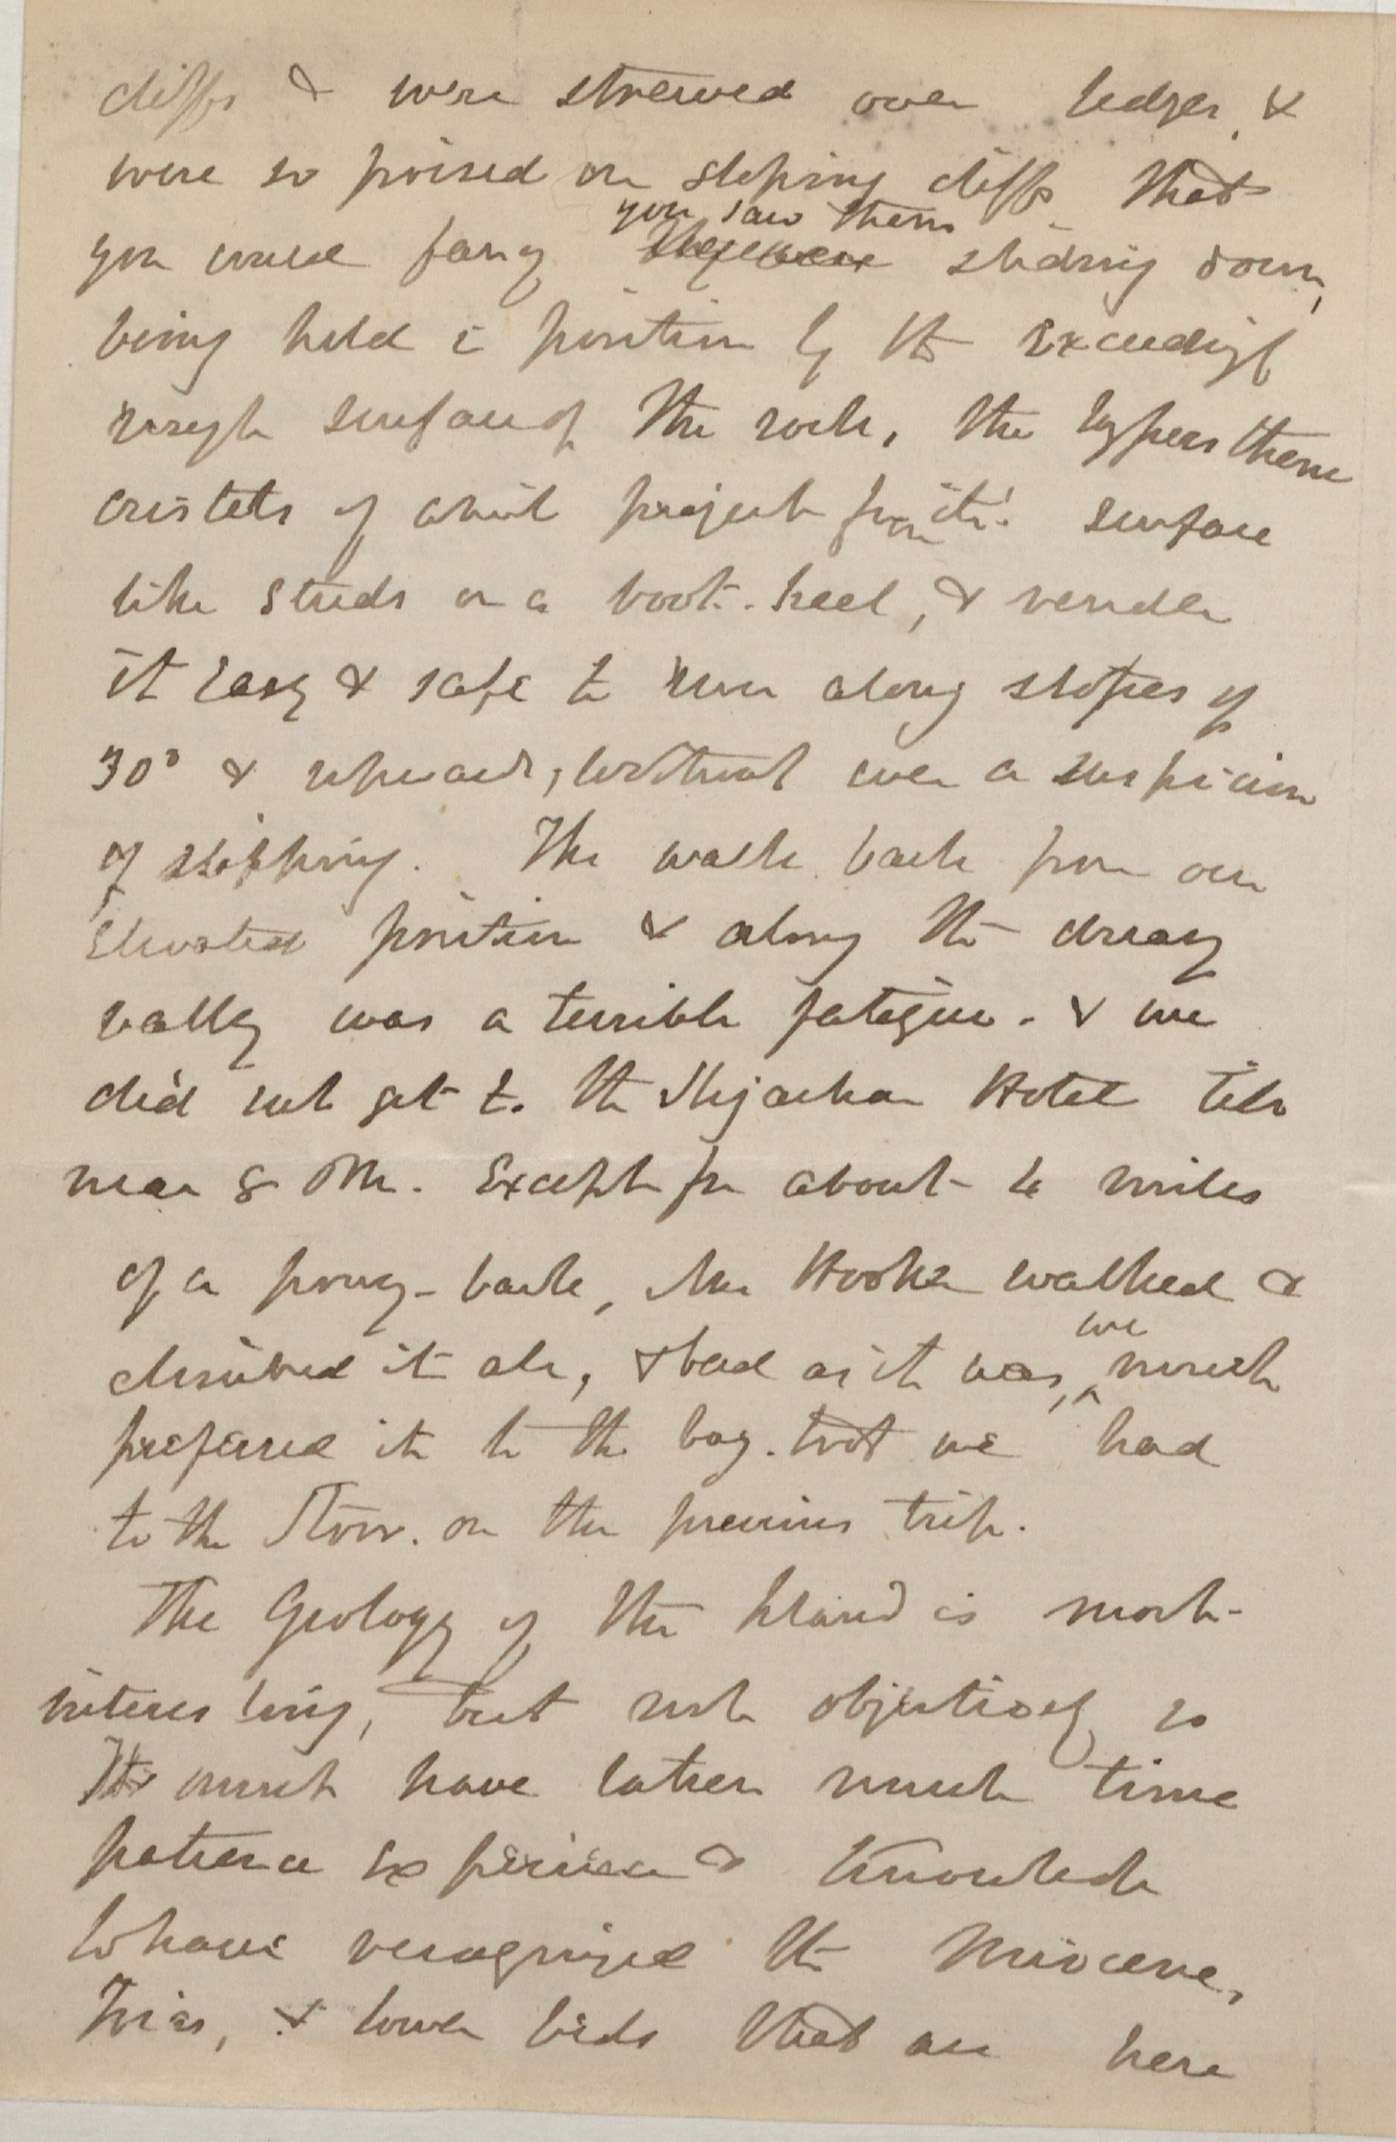 cliffs & were strewed over ledges, &
were so poised on sloping cliffs that
you would fancy you saw them sliding down,
being held in position by the exceedingly
rough surface of the rock, the hypersthene
cristals of which project from its' surface
like studs on a boot-heel, & render
it easy & safe to run along slopes of
30° & upwards, without even a suspicion
of slipping. The walk back from our
elevated position & along the dreary
valley was a terrible fatigue - & we
did not get to the Sligachan Hotel till
near 8 PM. Except for about 4 miles
of a pony-back, Mrs Hooker walked &
climbed it all, & bad as it was, we much
preferred it to the bog-trot we had
to the Storr. on the previous trip.
The Geology of the Island is most-
interesting, but not objectively so
It must have taken much time
patience experience & knowledge
to have recognized the Miocene,
Trias, & lower beds that are here